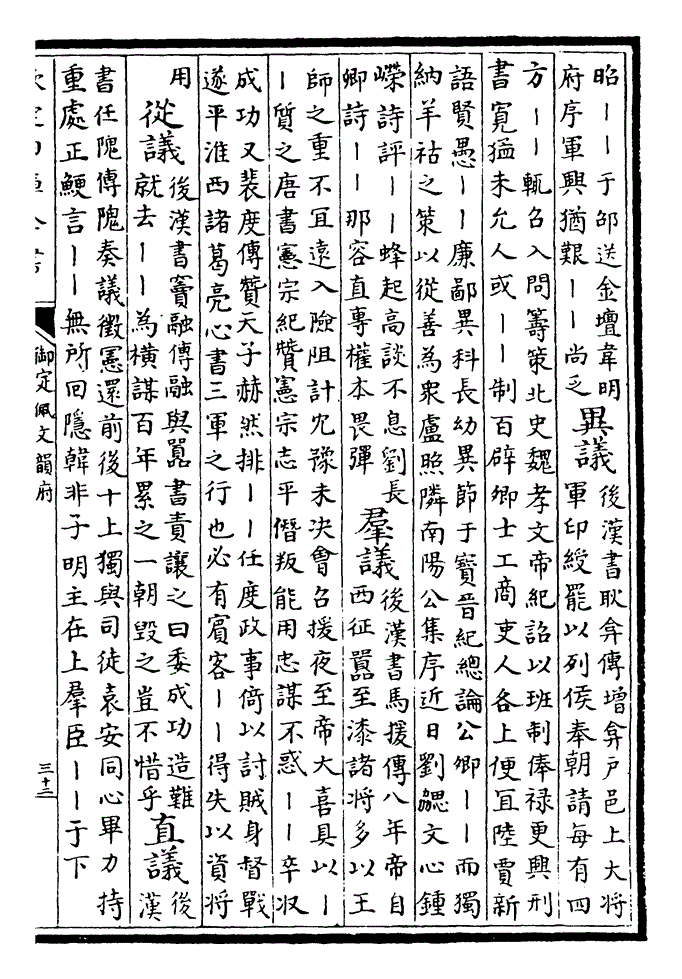 昭｜｜于邵送金壇韋明
府序軍興猶艱｜｜尚乏
異議
後漢書耿弇傳增弇戶邑上大將
軍印綬罷以列侯奉朝請每有四
方｜｜輒召入問籌策北史魏孝文帝紀詔以班制俸禄更興刑
書寬猛未允人或｜｜制百辟卿士工商吏人各上便宜陸賈新
語賢愚｜｜廉鄙異科長幼異節于寶晉紀總論公卿｜｜而獨
納羊祜之策以從善為衆盧照隣南陽公集序近日劉勰文心鍾
嶸詩評｜｜蜂起高談不息劉長
卿詩｜｜那容直專權本畏彈
羣議
後漢書馬援傳八年帝自
西征囂至漆諸將多以王
師之重不宜遠入險阻計冘豫未决會召援夜至帝大喜具以｜
｜質之唐書憲宗紀贊憲宗志平僭叛能用忠謀不惑｜｜卒收
成功又裴度傳贊天子赫然排｜｜任度政事倚以討賊身督戰
遂平淮西諸葛亮心書三軍之行也必有賓客｜｜得失以資將
用
從議
後漢書竇融傳融與囂書責讓之曰委成功造難
就去｜｜為橫謀百年累之一朝毀之豈不惜乎
直議
後
漢
書任隗傳隗奏議徵憲還前後十上獨與司徒袁安同心畢力持
重處正鯁言｜｜無所回隱韓非子明主在上羣臣｜｜于下
欽定四庫全書
御定佩文韻府
三十三